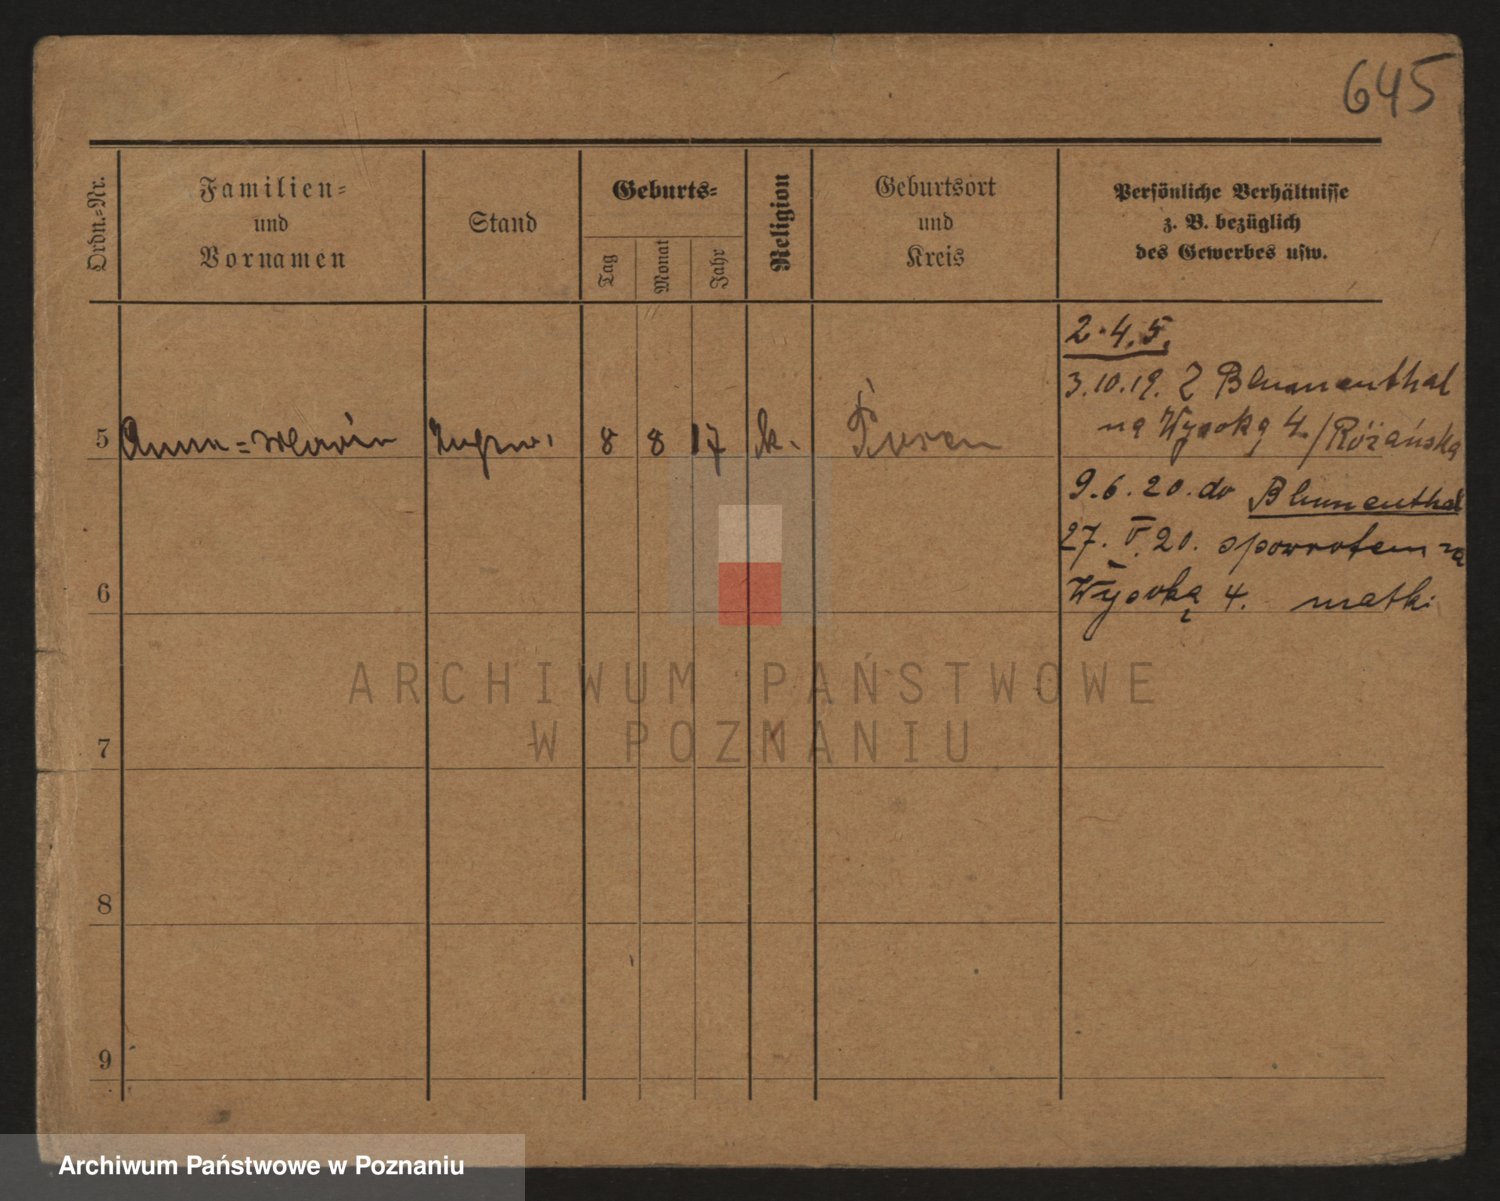 645
Ordn.-Nr.
Familien-
und
Vornamen
Stand
Geburts-
Tag
Monat
Jahr
Religion
Geburtsort
und
Kreis
Persönliche Verhältnisse
z. B. bezüglich
des Gewerbes usw.
2.4.5.
3.10.19. Z Blumenthal
na Wysoką 4 /Różańska
5 Anna = Maria 8 8 17 k. Posen
9.6.20. do Blumenthal
27. V. 20. spowrotem na
6 Wysoką 4. matki
ARCHIWUM PAŃSTWOWE
W POZNANIU
7
8
9
Archiwum Państwowe w Poznaniu